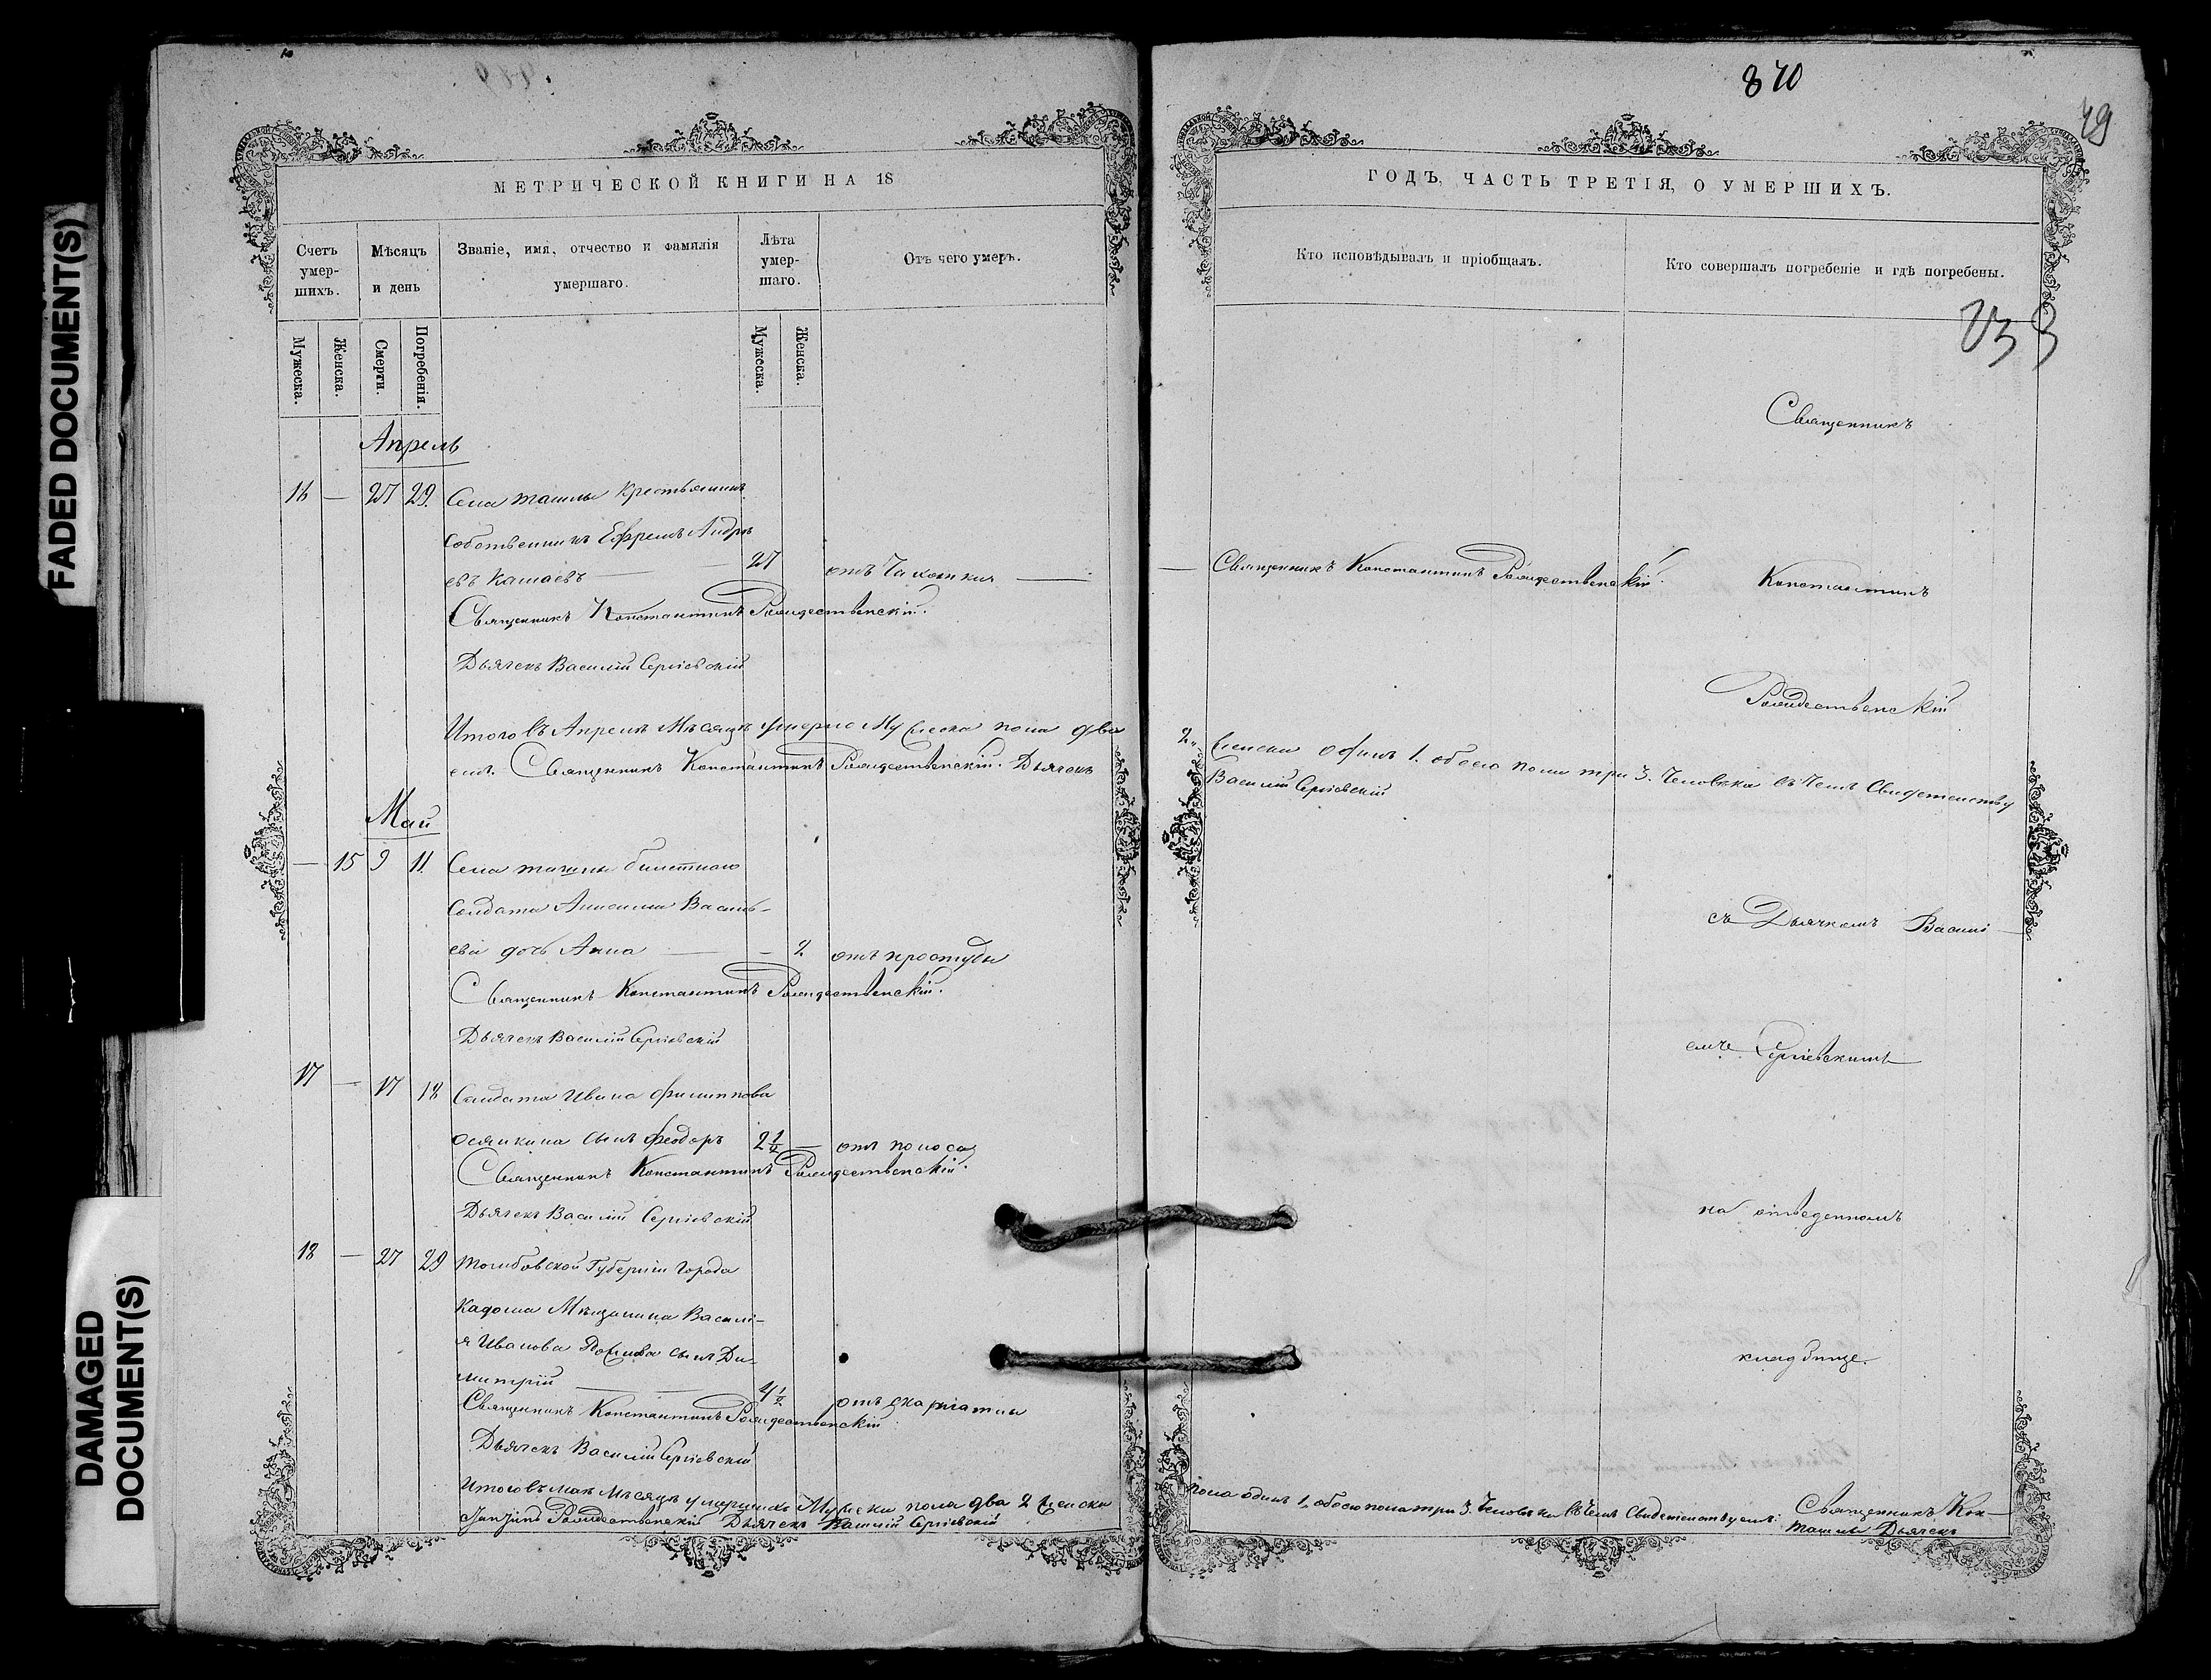 FADED DOCUMENT(S)
DAMAGED
DOCUMENT(S)
МЕТРИЧЕСКОЙ КНИГИ НА 18
Счетъ умер-шихъ.
Мѣсяцъ и день
Званіе, имя, отчество и фамилія умершаго.
Лѣта умер-шаго.
Отъ чего умеръ.
Мужеска.
Женска.
Смерти.
Погребенія.
Мужеска.
Женска.
Апрель
16 — 27 29. Села Ташлы крестьянинъ
собственникъ Ефремъ Андре
евъ Кашаевъ — 27 отъ Чахотки —
Священникъ Константинъ Рождественскій.
Дьячекъ Василій Сергіевскій
Итого въ Апрелѣ Мѣсяцѣ умерло Мужеска пола два
емъ. Священникъ Константинъ Рождественскій. Дьячекъ
Май
— 15 9 11. Села Ташлы билетнаго
Солдата Анисима Василь-
ева дочь Анна — – 2 отъ простуды
Священникъ Константинъ Рождественскій.
Дьячекъ Василій Сергіевскій
17 — 17 18 Солдата Ивана Филиппова
сынъ Феодоръ 2½ — отъ поноса
Священникъ Константинъ Рождественскій.
Дьячекъ Василій Сергіевскій
18 — 27 29 Губерніи города
Кадома Мѣщанина Василі-
я Иванова сынъ Ди-
митрій — 4½ отъ скарлатины
Священникъ Константинъ Рождественскій
Дьячекъ Василій Сергіевскій
Итого въ Маѣ Мѣсяцѣ умершихъ Мужеска пола два 2 женска
Рождественскій Дьячекъ Василій Сергіевскій
870
49
ГОДЪ, ЧАСТЬ ТРЕТІЯ, О УМЕРШИХЪ.
Кто исповѣдывалъ и пріобщалъ.
Кто совершалъ погребеніе и гдѣ погребены.
Священникъ
— Священникъ Константинъ Рождественскій.
Константинъ
Рождественскій
2. женска одинъ 1. обоего пола три 3. Человѣка въ чемъ Свидетельству
Василій Сергіевскій
съ Дьячкомъ Васили—
емъ Сергіевскимъ
на отведенномъ
кладбище.
пола одинъ 1, обоего пола три 3. Человѣка въ чемъ Свидетельствуемъ: Священникъ Кон—
Дьячекъ